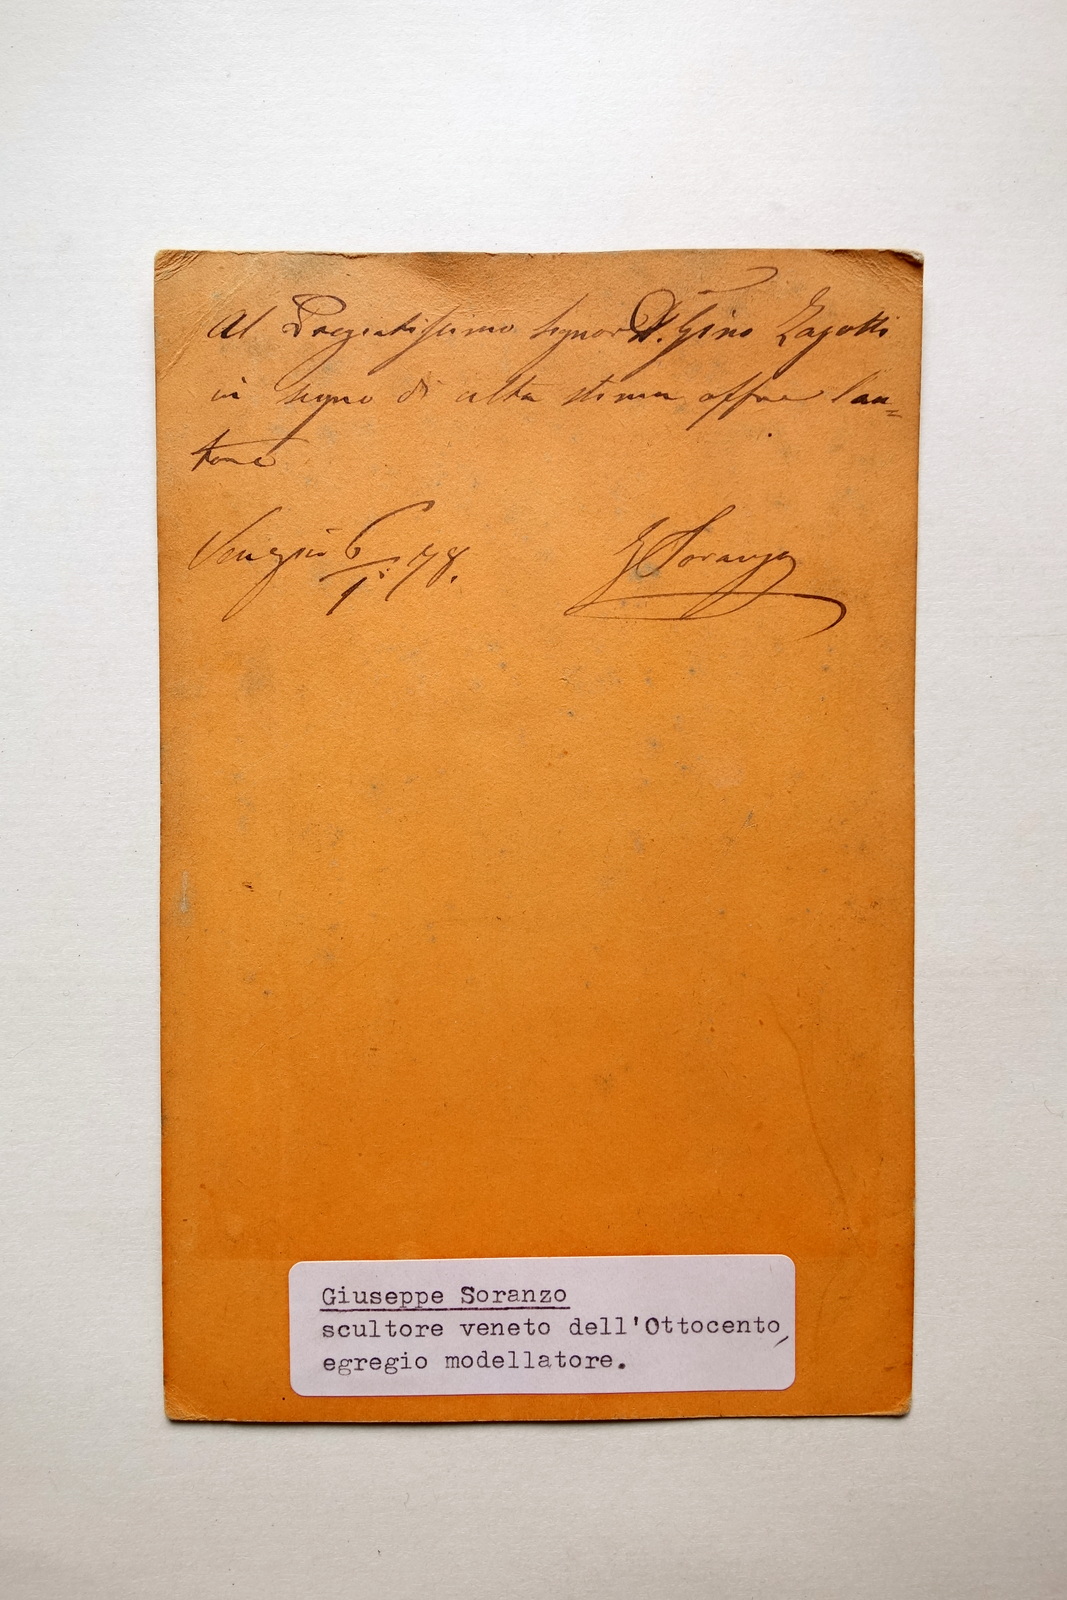 Al Pregiatissimo Signor D. Gino Zagotti
in segno di alta stima offre l'au=
tore
Venezia 6/1: 78.
G Soranzo
Giuseppe Soranzo
scultore veneto dell'Ottocento,
egregio modellatore.